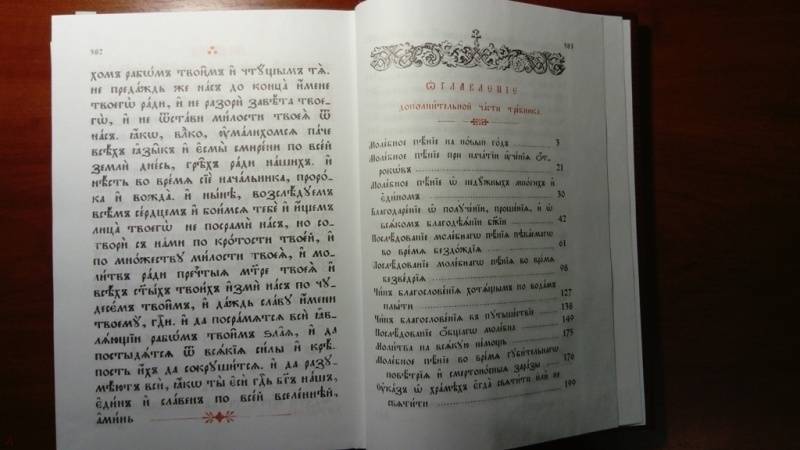 302
хомъ рабѡмъ твои̑мъ и҆ чтꙋ́щымъ тѧ̀.
не преда́ждь же на́съ до конца̀ и҆́мене
твоегѡ̀ ра́ди, и҆ не разорѝ завѣ́та твое-
гѡ̀, и҆ не ѿста́ви ми́лости твоеѧ̀ ѿ
на́съ. ꙗ҆́кѡ, влⷣко, ᲂу҆мали́хомсѧ па́че
всѣ́хъ ꙗ҆зы̑къ и҆ є҆смы̀ смире́ни по все́й
землѝ дне́сь, грѣ̑хъ ра́ди на́шихъ. и҆
нѣ́сть во вре́мѧ сїѐ нача́льника, проро́-
ка и҆ вожда̀. и҆ ны́нѣ, возслѣ́дꙋемъ
всѣ́мъ се́рдцемъ и҆ бои́мсѧ тебѐ и҆ и҆́щемъ
лица̀ твоегѡ̀ не посрамѝ на́съ, но со-
творѝ съ на́ми по кро́тости твое́й, и҆
по мно́жествꙋ ми́лости твоеѧ̀, и҆ мо-
ли́твъ ра́ди пречⷭ҇тыѧ мт҃ре твоеѧ̀ и҆
всѣ́хъ ст҃ы́хъ твои́хъ и҆змѝ на́съ по чꙋ-
десє́мъ твои̑мъ, и҆ да́ждь сла́вꙋ и҆́мени
твоемꙋ̀, гдⷭ҇и. и҆ да посра́мѧтсѧ всѝ ꙗ҆в-
лѧ́ющїи рабѡ́мъ твои̑мъ ѕла̑ѧ, и҆ да
постыдѧ́тсѧ ѿ всѧ́кїѧ си́лы и҆ крѣ́-
пость и҆́хъ да сокрꙋши́тсѧ. и҆ да разꙋ-
мѣ́ютъ всѝ, ꙗ҆́кѡ ты̀ є҆сѝ гдⷭ҇ь бг҃ъ на́шъ,
є҆ди́нъ и҆ сла́венъ по все́й вселе́ннѣй,
а҆ми́нь
303
Ѡ҆ГЛАВЛЕ́НЇЕ
дополни́тельной ча́сти тре́бника.
Моле́бное пѣ́нїе на но́вый го́дъ 3
Моле́бное пѣ́нїе при нача́тїи ᲂу҆че́нїѧ ѻ҆т-
рокѡ́въ 21
Моле́бное пѣ́нїе ѡ҆ недꙋ́жныхъ мно́гихъ и҆
є҆ди́номъ 30
Благодаре́нїе ѡ҆ полꙋче́нїи, проше́нїѧ, и҆ ѡ҆
всѧ́комъ благодѣѧ́нїи бж҃їи 42
Послѣ́дованїе моле́бнагѡ пѣ́нїѧ пѣва́емагѡ
во вре́мѧ бездо́ждїѧ 61
Послѣ́дованїе моле́бнагѡ пѣ́нїѧ во вре́мѧ
безве́дрїѧ 98
Чи́нъ благослове́нїѧ хотѧ́щымъ по вода́мъ
плы́ти 127
Чи́нъ благослове́нїѧ въ пꙋтьше́ствїе 138
Послѣ́дованїе ѻ҆́бщагѡ моле́бна 149
Моли́тва на всѧ́кꙋю не́мощь 175
Моле́бное пѣ́нїе во вре́мѧ гꙋби́тельнагѡ
повѣ́трїѧ и҆ смертоно́сныѧ зара́зы 176
Оу҆ка́зъ ѡ҆ хра́мѣхъ є҆гда̀ свѧти́ти и҆лѝ не
свѧти́ти 199